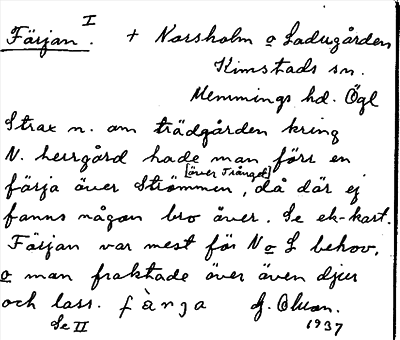 Färjan. I + Norsholm o Ladugården
Kimstads sn.
Memmings hd. Ögl
Strax n. om trädgården kring
N. herrgård hade man förr en
[över Trånget]
färja över Strömmen, då där ej
fanns någon bro över. Se ek-kart.
Färjan var mest för N o L behov,
o man fraktade över även djur
och lass. fàrja G. Olson.
Se II 1937